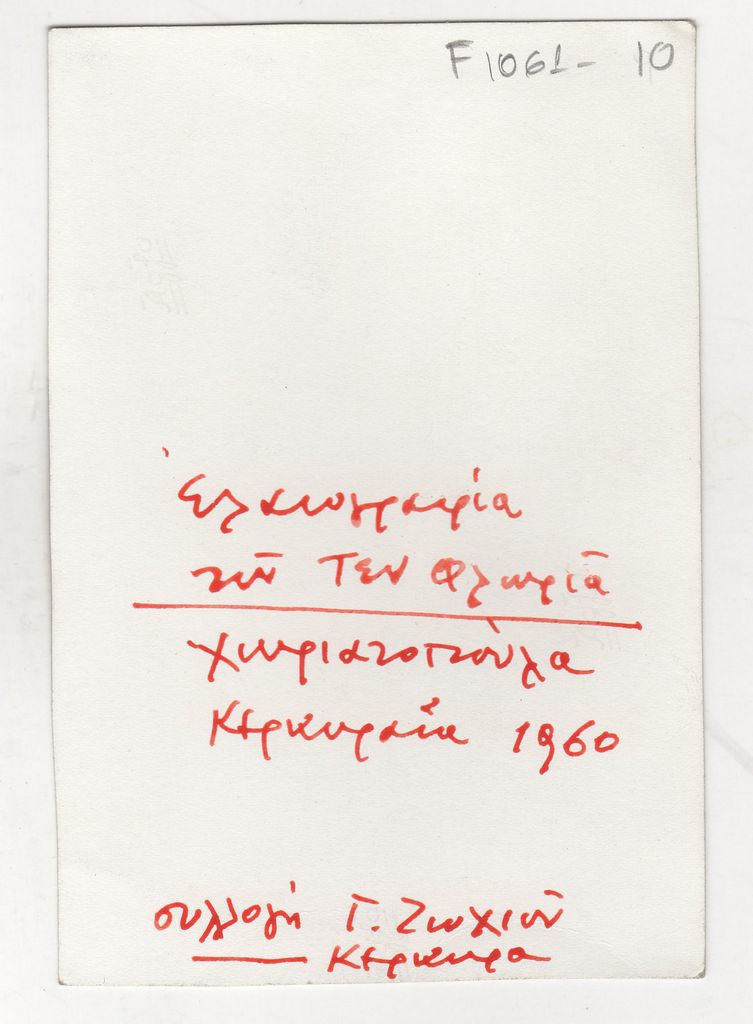 F1061- 10
Ἐλαιογραφία
τοῦ Τεν Φλωριᾶ
χωριατοπούλα
Κερκυραία 1960
συλλογή Γ. Ζωχιοῦ
Κερκυρα